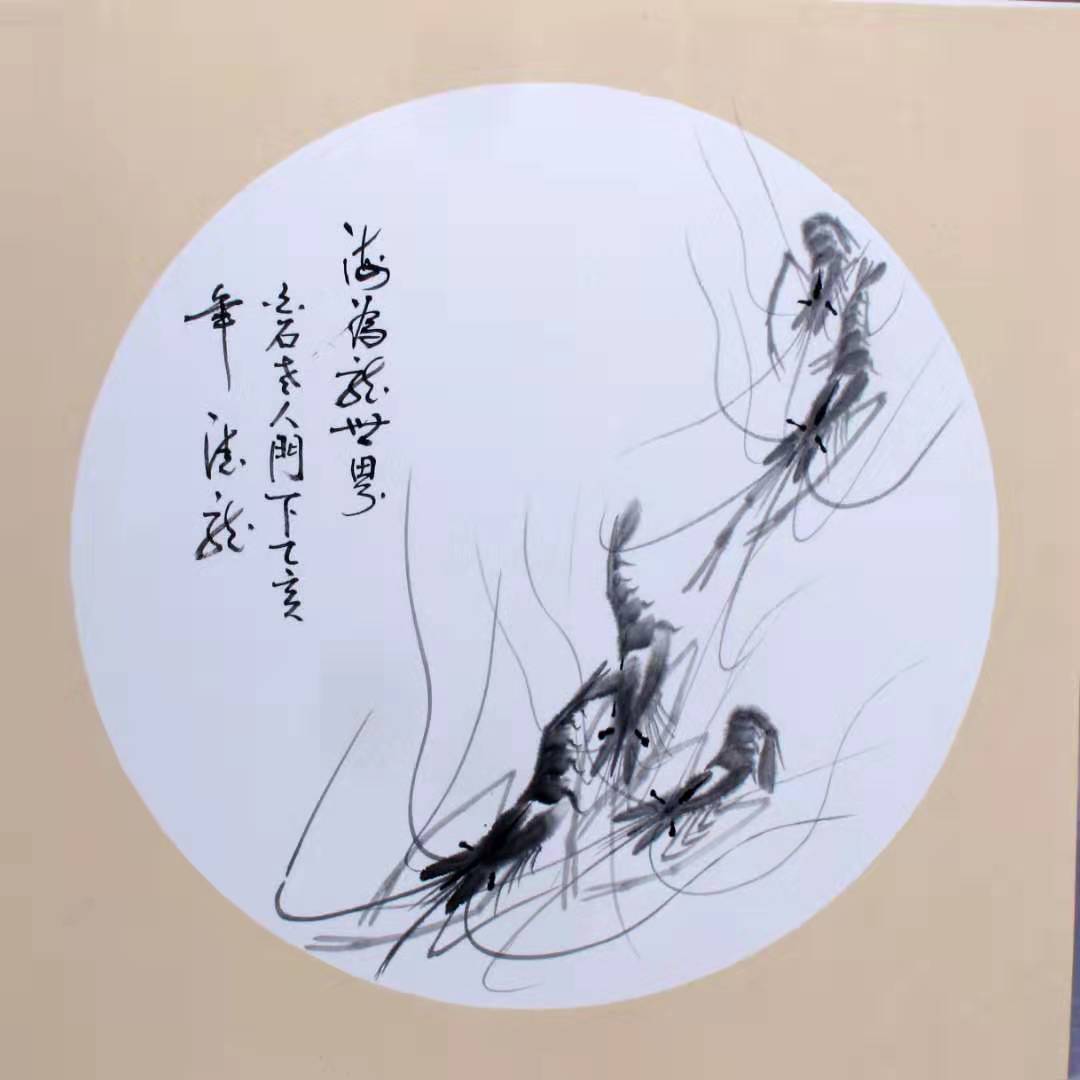 海為龍世界
白石老人門下乙亥
年 龍